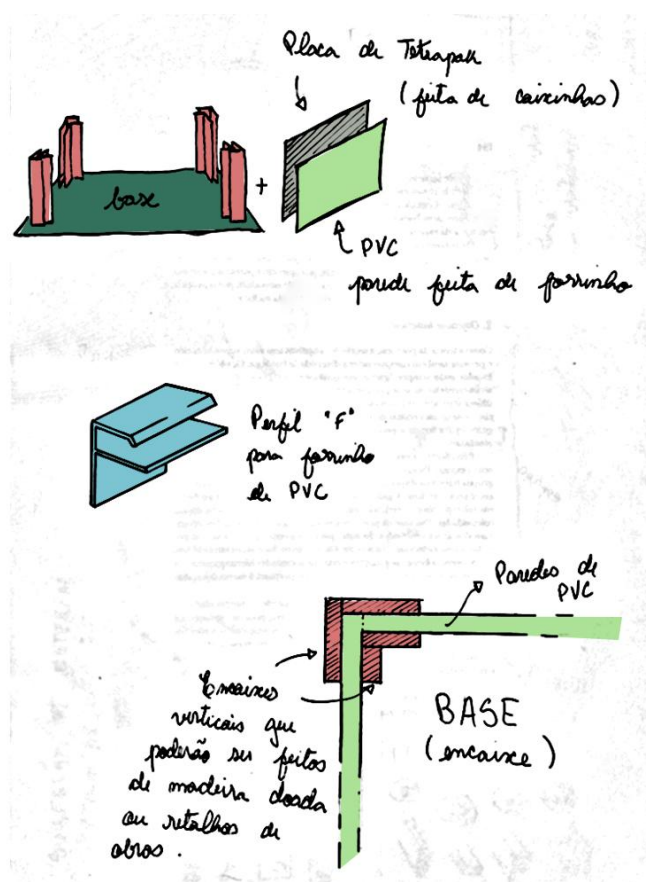 Placa de Tetrapak
(feita de caixinhas)
base
+
PVC
parede feita de forrinho
Perfil "F"
para forrinho
de PVC
Paredes de
PVC
Encaixes
verticais que
poderão ser feitos
de madeira doada
ou retalhos de
obras.
BASE
(encaixe)